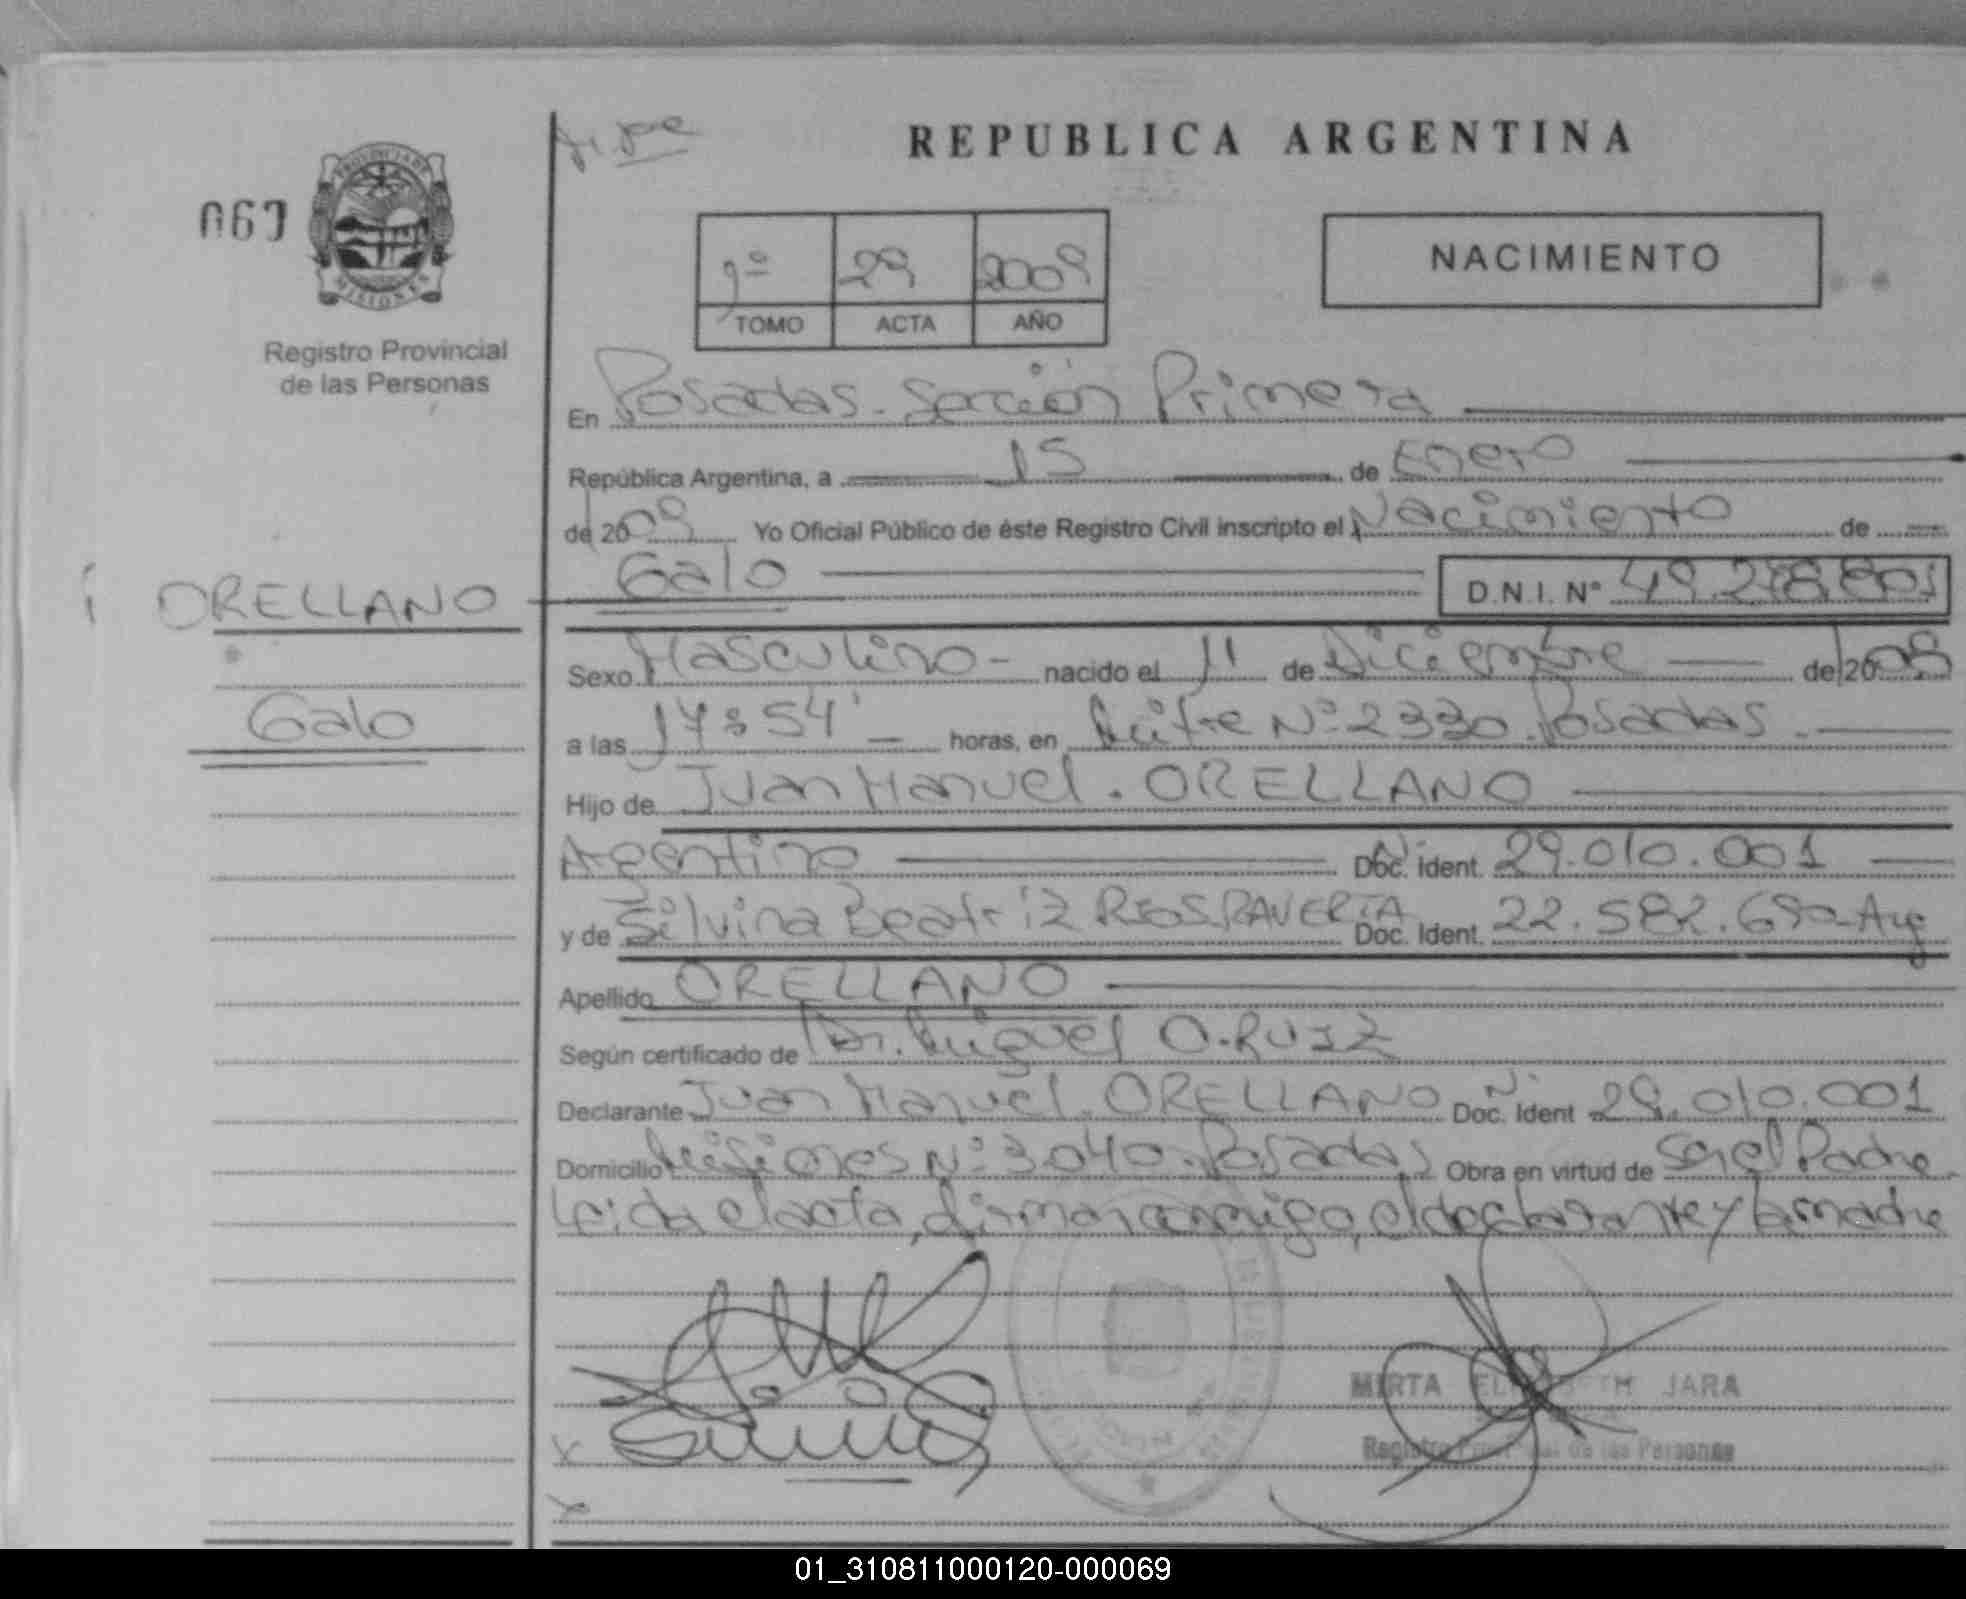 REPUBLICA ARGENTINA
PROVINCIA DE MISIONES
Registro Provincial
de las Personas
1º 29 2009
TOMO ACTA AÑO
NACIMIENTO
En Posadas. Sección Primera
República Argentina, a 15 de Enero
de 2009 Yo Oficial Público de éste Registro Civil inscripto el Nacimiento de
ORELLANO Galo D.N.I. Nº 49.278.801
Sexo Masculino - nacido el 11 de Diciembre de 2008
Galo
a las 17:54' horas, en Mitre Nº 2330. Posadas.
Hijo de Juan Manuel. ORELLANO
Argentino Doc. Ident. Nº 29.010.001
y de Silvina Beatriz RIOS RAVERTA Doc. Ident. 22.582.690-Arg
Apellido ORELLANO
Según certificado de Dr. Miguel O. RUIZ
Declarante Juan Manuel. ORELLANO Doc. Ident Nº 29.010.001
Domicilio Misiones Nº 3040. Posadas Obra en virtud de ser el Padre
Leida el acta, firman conmigo, el declarante y la madre
MIRTA ELIZABETH JARA
Registro Provincial de las Personas
01_310811000120-000069